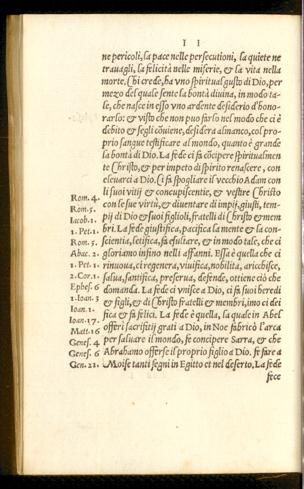 I I
ne pericoli, la pace nelle persecutioni, la quiete ne
trauagli, la felicità nelle miserie, & la vita nella
morte. Chi crede, ha vno spiritual gusto di Dio, per
mezo del quale sente la bontà diuina, in modo ta-
le, che nasce in esso vno ardente desiderio d'hono-
rarlo: & visto che non puo farlo nel modo che ci è
debito & segli cōuiene, desidera almanco, col pro-
prio sangue testificare al mondo, quanto è grande
la bontà di Dio. La fede ci fa cōcipere spiritualmen
te Christo, & per impeto di spirito renascere, con
eleuarci a Dio. Ci fa spogliare il vecchio Adam con
li suoi vitij & concupiscentie, & vestire Christo
Rom. 4. con le sue virtù, & diuentar di impij, giusti, tem-
Rom. 5. pij di Dio & suoi figlioli, fratelli di Christo & mem
Iacob. 1. bri. La fede giustifica, pacifica la mente & la con-
1. Pet. 1. scientia, letifica, fa esultare, & in modo tale, che ci
Rom. 5. gloriamo insino nelli affanni. Essa è quella che ci
Abac. 2. rinnoua, ci regenera, viuifica, nobilita, aricchisce,
1. Pet. 1. salua, santifica, preserua, defende, ottiene ciò che
2. Cor. 1. domanda. La fede ci vnisce a Dio, ci fa suoi heredi
Ephes. 6 & figli, & di Christo fratelli & membri, imo ci dei
1. Ioan. 3 fica & fa felici. La fede è quella, la quale in Abel
Ioan. 1. offerì sacrifitij grati a Dio, in Noe fabricò l'arca
Ioan. 17. per saluare il mondo, fe concipere Sarra, & che
Matt. 16 Abrahamo offerse il proprio figlio a Dio. fe fare a
Genes. 4 Moise tanti segni in Egitto et nel deserto. La fede
Genes. 6
Gen. 22.
fece